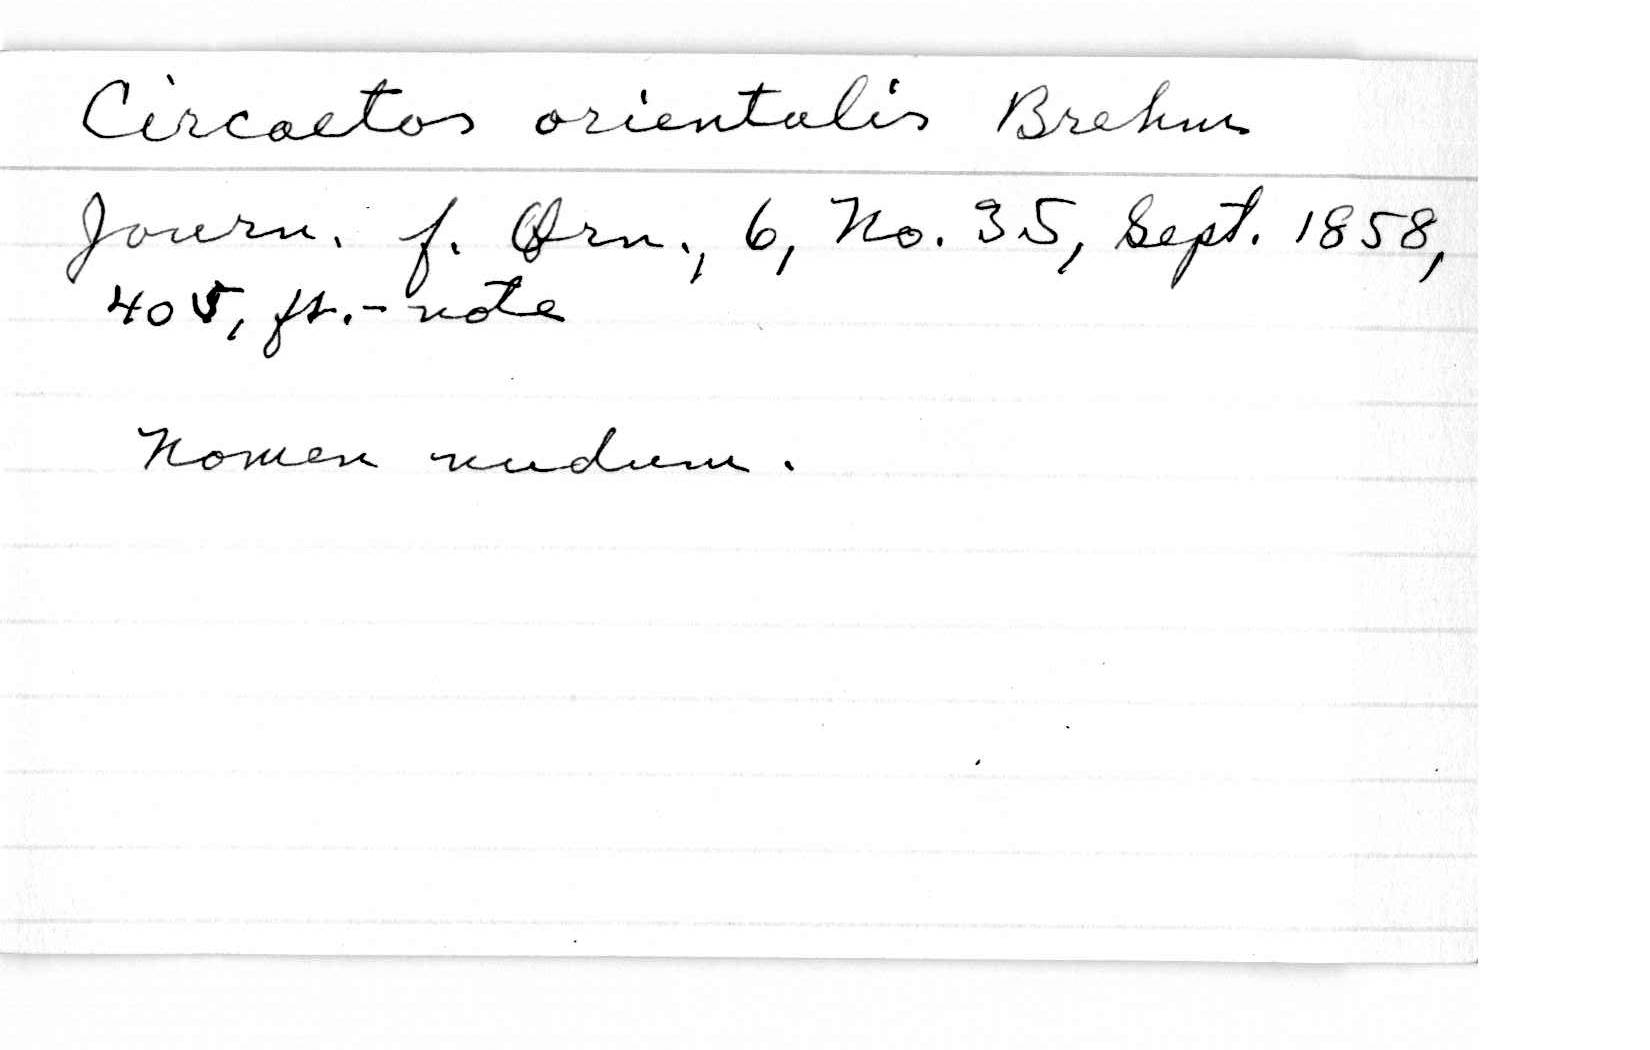 Circaetos orientalis Brehm
Journ. f. Orn., 6, No. 35, Sept. 1858,
405, ft.-note
Nomen nudum.